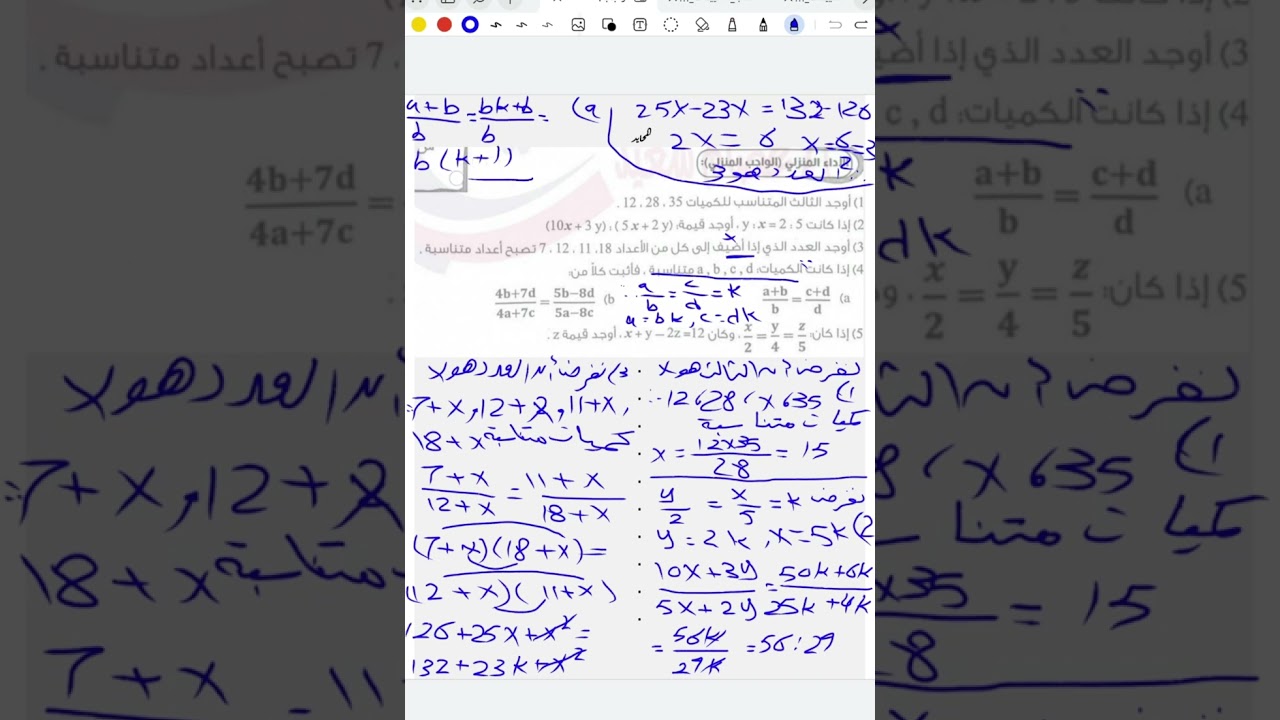 25x-23x = 132-126
2x = 6 x = 6/2 = 3
∴ العدد هو 3
a) (a+b)/b = (bk+b)/b =
b(k+1)
الأداء المنزلي (الواجب المنزلي):
1) أوجد الثالث المتناسب للكميات 35 ، 28 ، 12 .
2) إذا كانت y : x = 2 : 5 ، أوجد قيمة: (5x + 2y) : (10x + 3y)
x
3) أوجد العدد الذي إذا أضيف إلى كل من الأعداد 18، 11، 12، 7 تصبح أعداد متناسبة .
4) إذا كانت الكميات: a , b , c , d متناسبة ، فأثبت كلاً من:
a) (a+b)/b = (c+d)/d
∴ a/b = c/d = k
a = bk , c = dk
b) (4b+7d)/(4a+7c) = (5b-8d)/(5a-8c)
5) إذا كان: x/2 = y/4 = z/5 ، وكان x + y - 2z = 12، أوجد قيمة z .
نفرض أن الثالث هو x
1) 12، 28، x، 35
كميات متناسبة
x = (12×35)/28 = 15
2) نفرض y/2 = x/5 = k
y = 2k , x = 5k
(10x+3y)/(5x+2y) = (50k+6k)/(25k+4k)
= 56k/29k = 56:29
3) نفرض أن العدد هو x
7+x, 12+x, 11+x,
18+x كميات متناسبة
(7+x)/(12+x) = (11+x)/(18+x)
(7+x)(18+x)=
(12+x)(11+x)
126+25x+x² =
132+23x+x²